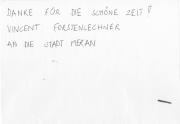 DANKE FÜR DIE SCHÖNE ZEIT!
VINCENT FORSTENLECHNER
AN DIE STADT MERAN